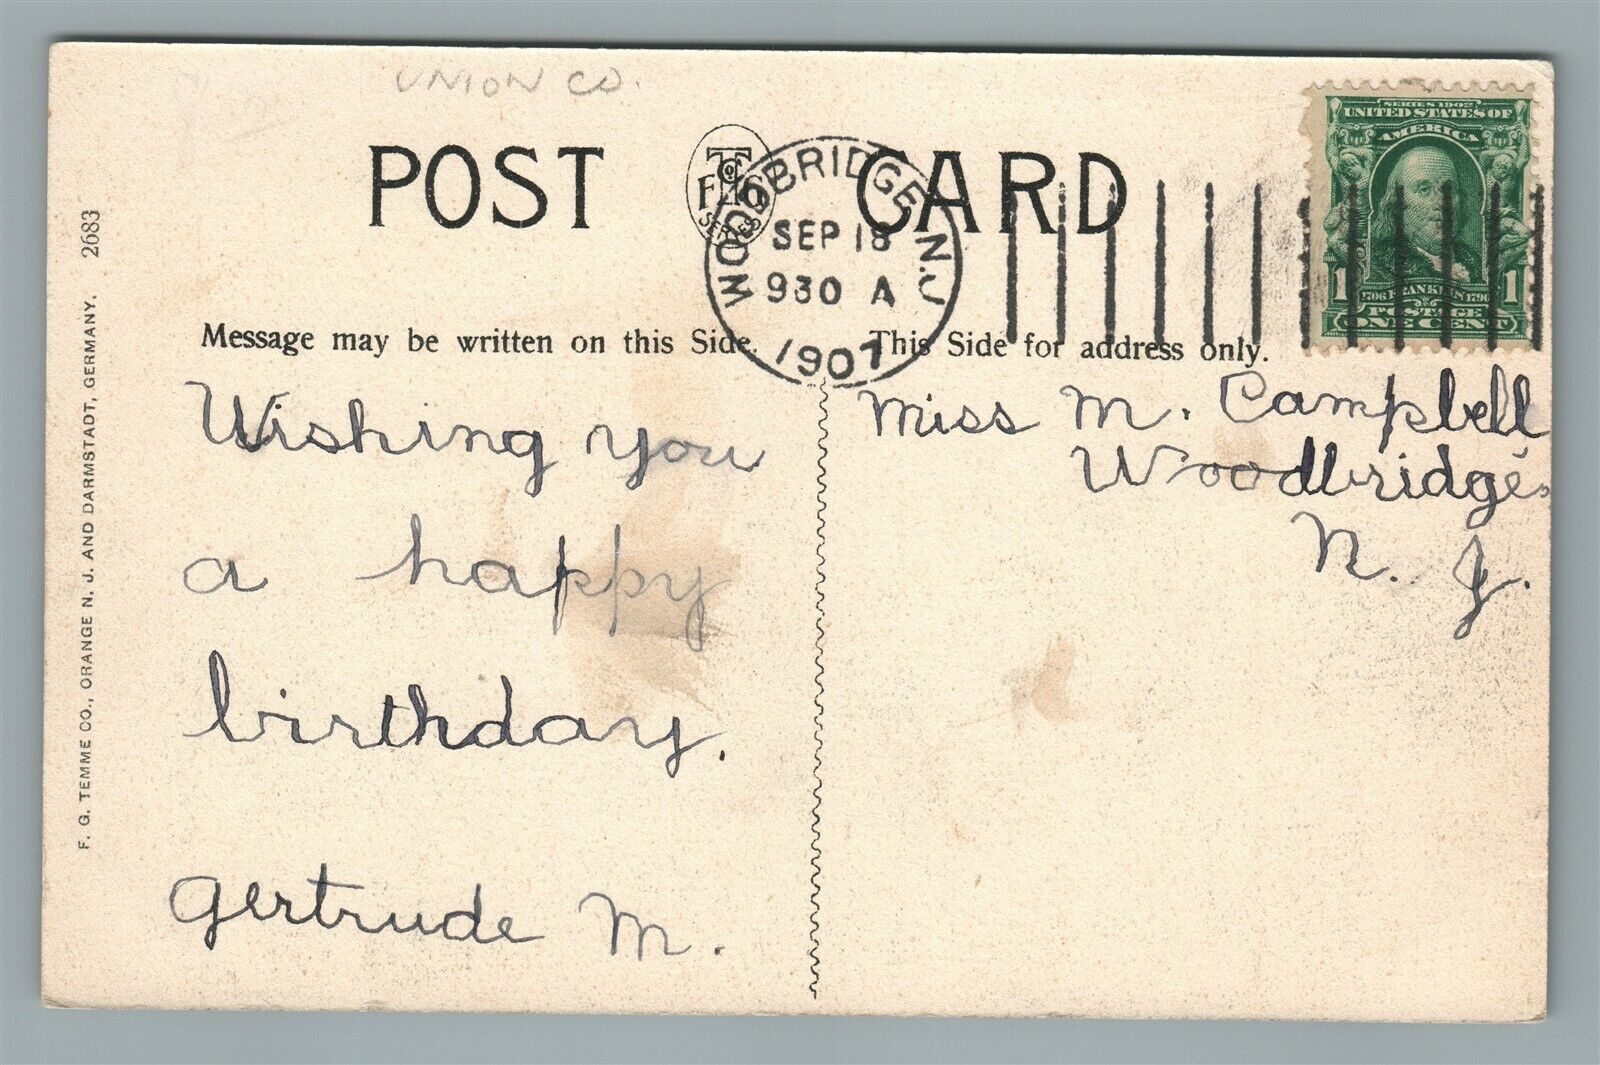 UNION CO.
POST CARD
T Co
F G
SERIES
WOODBRIDGE N.J.
SEP 18
930 A
1907
SERIES 1902
UNITED STATES OF
AMERICA
1 1
1706 FRANKLIN 1790
POSTAGE
ONE CENT
Message may be written on this Side.
This Side for address only.
Wishing you
a happy
birthday.
Gertrude M.
Miss M. Campbell
Woodbridge,
N. J.
F. G. TEMME CO., ORANGE N. J. AND DARMSTADT, GERMANY. 2683